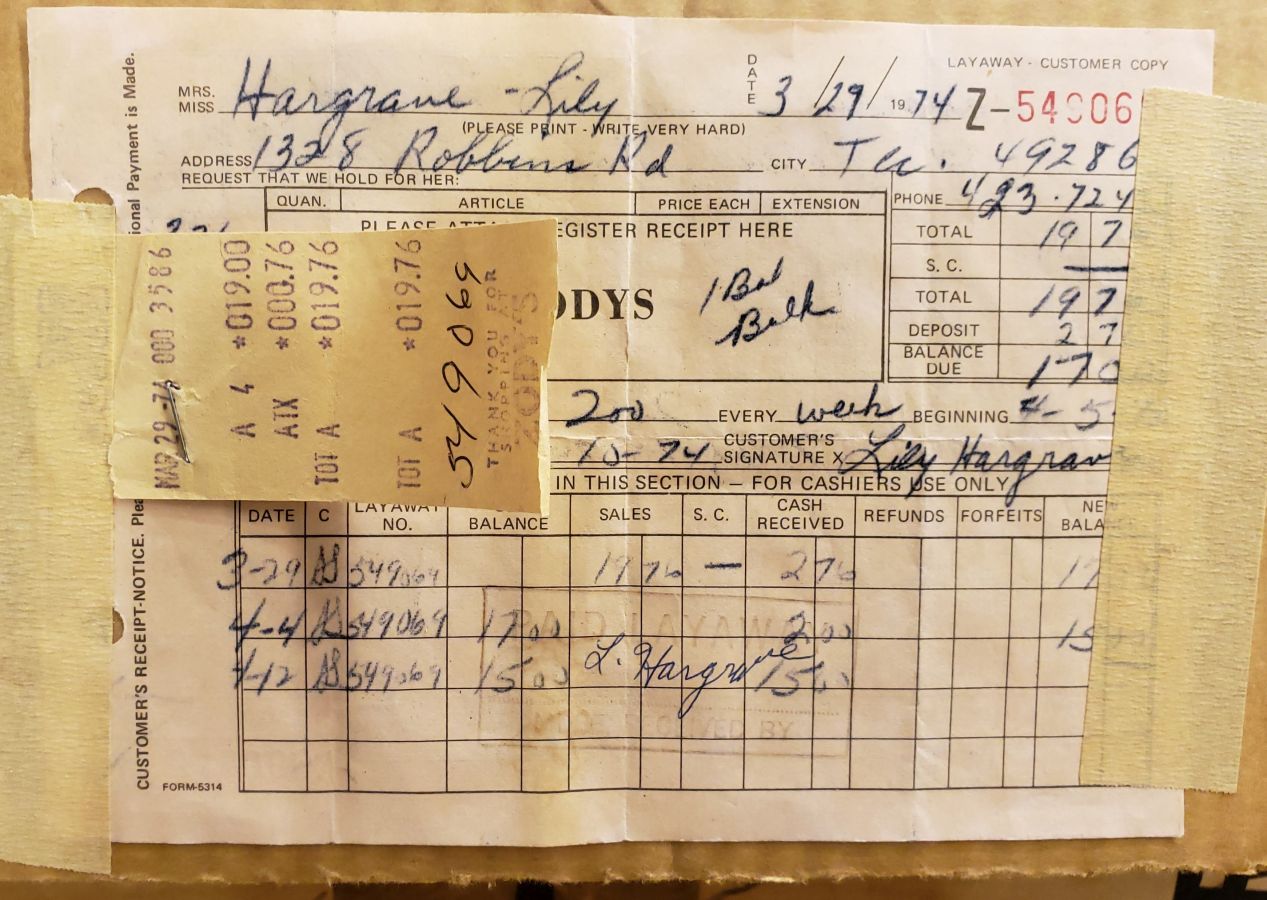 LAYAWAY - CUSTOMER COPY
MRS. MISS Hargrave - Lily DATE 3/29/1974 Z-54906
(PLEASE PRINT - WRITE VERY HARD)
ADDRESS 1328 Robbins Rd CITY 49286
REQUEST THAT WE HOLD FOR HER:
PHONE 423-724
QUAN. ARTICLE PRICE EACH EXTENSION
PLEASE EGISTER RECEIPT HERE
ODYS
1
TOTAL 19 7
S. C. —
TOTAL 19 7
DEPOSIT 2 7
BALANCE DUE 17 0
200 EVERY week BEGINNING 4-5
10-74 CUSTOMER'S SIGNATURE X Lily Hargrav
IN THIS SECTION — FOR CASHIERS USE ONLY
DATE C LAYAWAY NO. BALANCE SALES S. C. CASH RECEIVED REFUNDS FORFEITS NE BALA
3-29 AS 549069 19 76 — 2 76 17
4-4 549069 17 00 2 00 15
4-12 AS 549069 15 00 L. Hargrave 15 00
FORM-5314
CUSTOMER'S RECEIPT-NOTICE. Plea
ional Payment is Made.
MAR 29 -74 000 3586
A 4 *019.00
ATX *000.76
TOT A *019.76
TOT A *019.76
549069
THANK YOU FOR
SHOPPING AT
ZODYS